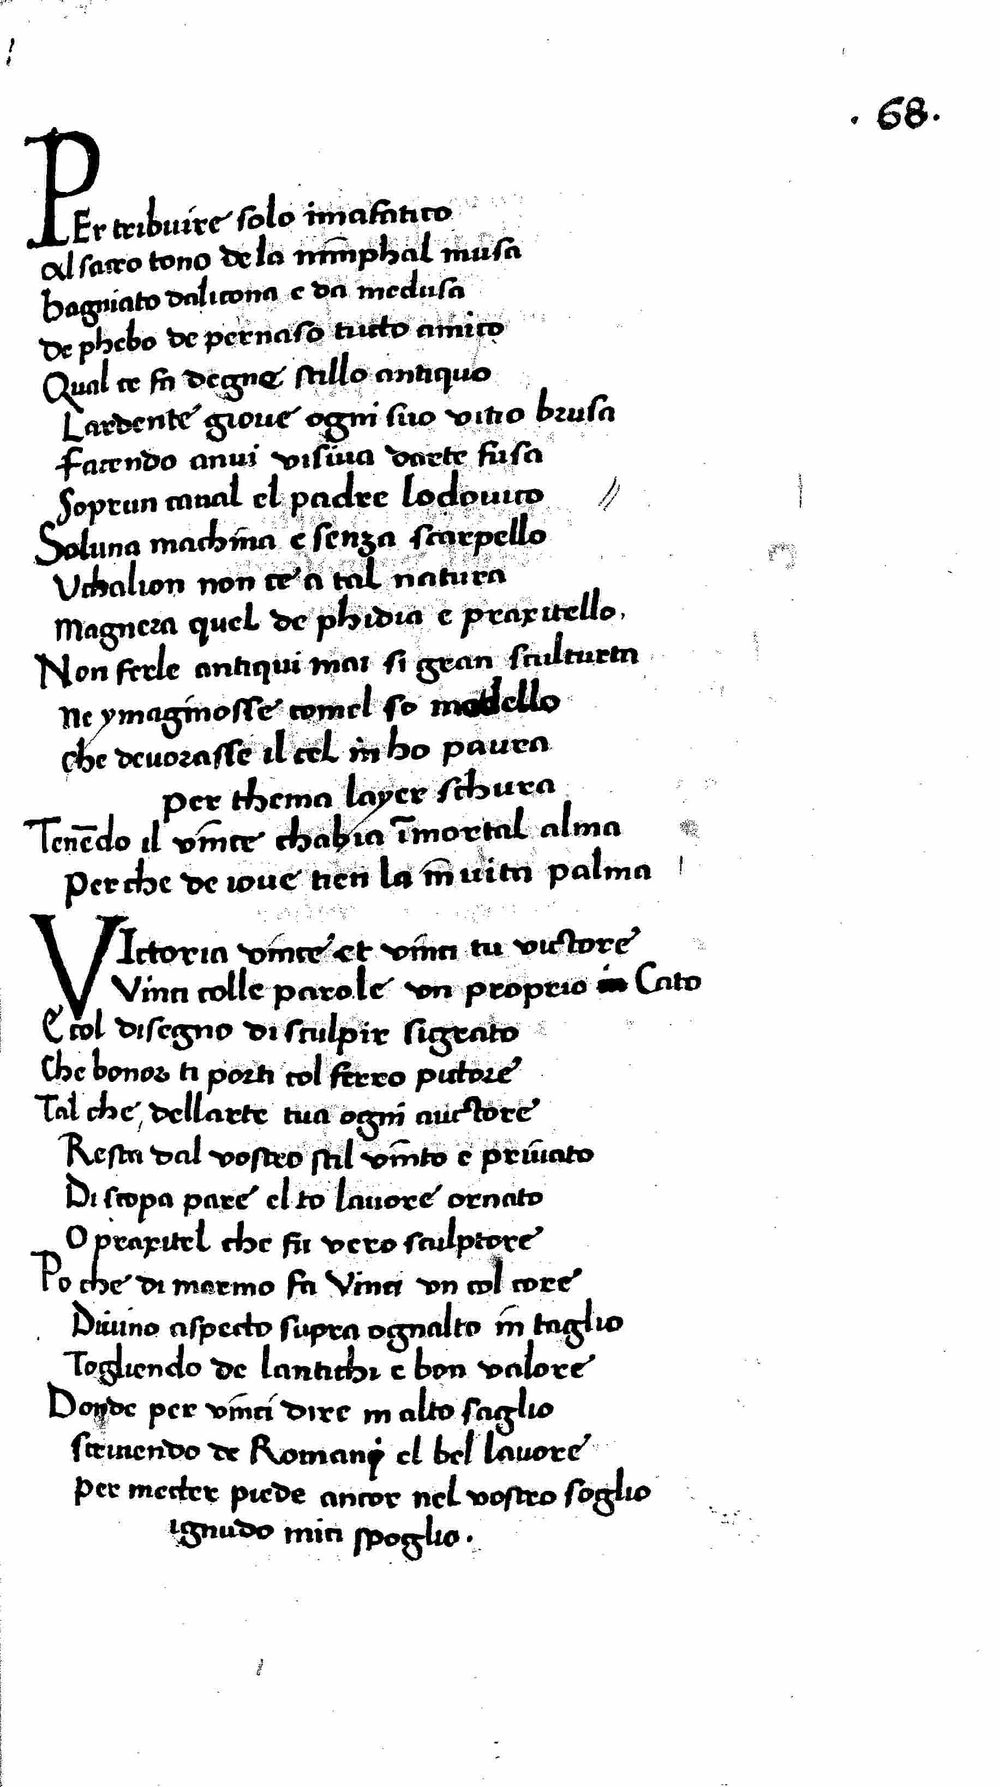 . 68 .
PEr tribuire solo imafatico
al sacro tono de la nīmphal musa
bagniato dalicona e da medusa
de phebo de pernaso tucto amico
Qual ce fa degne stillo antiquo
Lardente gioue ogni suo vitio brusa
facendo anui visiua darte fusa
Soprun caual el padre lodouico
Soluna machīna e senza scarpello
Vchalion non ce a tal natura
magneza quel de phidia e praxitello.
Non ferle antiqui mai si gran scultura
ne ymaginosse comel so modello
che deuorasse il cel in ho paura
per thema layer schura
Tenēdo il vīnce chabia īmortal alma
perche de ioue tien la īnuita palma
VIctoria vīnce et vīnci tu victore
Vinci colle parole vn proprio Cato
E col disegno di sculpir sigrato
Che bonor ti porti col ferro pictore
Tal che dellarte tua ogni auctore
Resta dal vostro stil vīnto e priuato
Di scopa pare el to lauore ornato
O praxitel che fu vero sculptore
Po che di marmo fa Vinci vn col core
Diuino aspecto supra ognalto īn taglio
Togliendo de lantichi e bon valore
Donde per vīnci dire in alto saglio
scriuendo de Romani el bel lauore
per mecter piede ancor nel vostro soglio
ignudo mici spoglio.